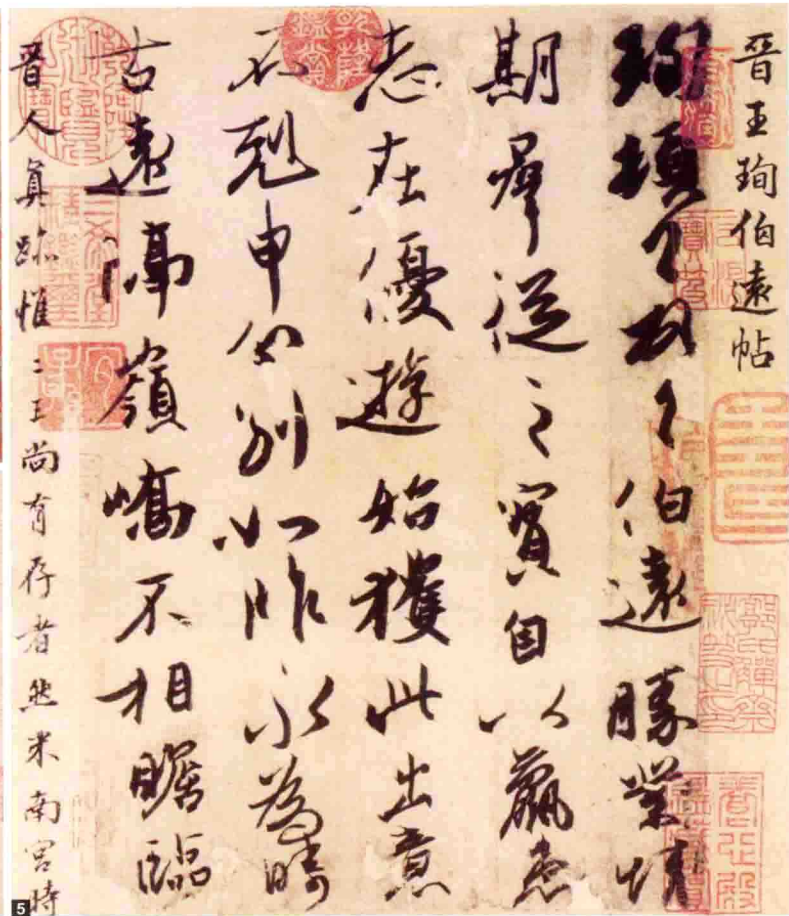 晉王珣伯遠帖
珣頓首頓首伯遠勝業情
期群從之寶自以羸患
志在優遊始獲此出意
不剋申分別如昨永為疇
古遠隔嶺嶠不相瞻臨
晉人真跡惟二王尚有存者然米南宮時
5